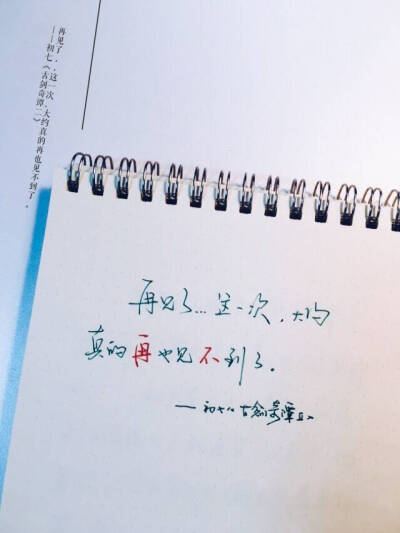 再见了，这一次，大约真的再也见不到了。
——初七《古剑奇谭二》
再见了...这一次，大约
真的再也见不到了。
——初七《古剑奇谭二》